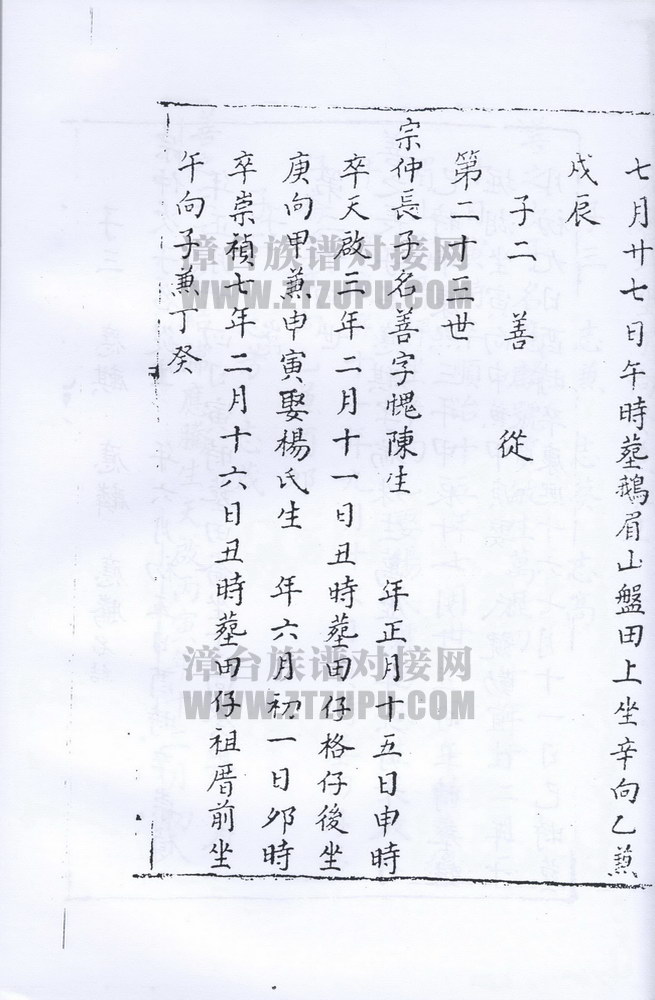 七月廿七日午時塟鵝眉山盤田上坐辛向乙蒹
戌辰
子二 善 從
第二十三世
宗仲長子名善字愧陳生 年正月十五日申時
卒天啟三年二月十一日丑時塟田仔格仔後坐
庚向甲蒹申寅娶楊氏生 年六月初一日夘時
卒崇禎七年二月十六日丑時塟田仔祖厝前坐
午向子蒹丁癸
漳台族谱对接网
WWW.ZTZUPU.COM
漳台族谱对接网
WWW.ZTZUPU.COM